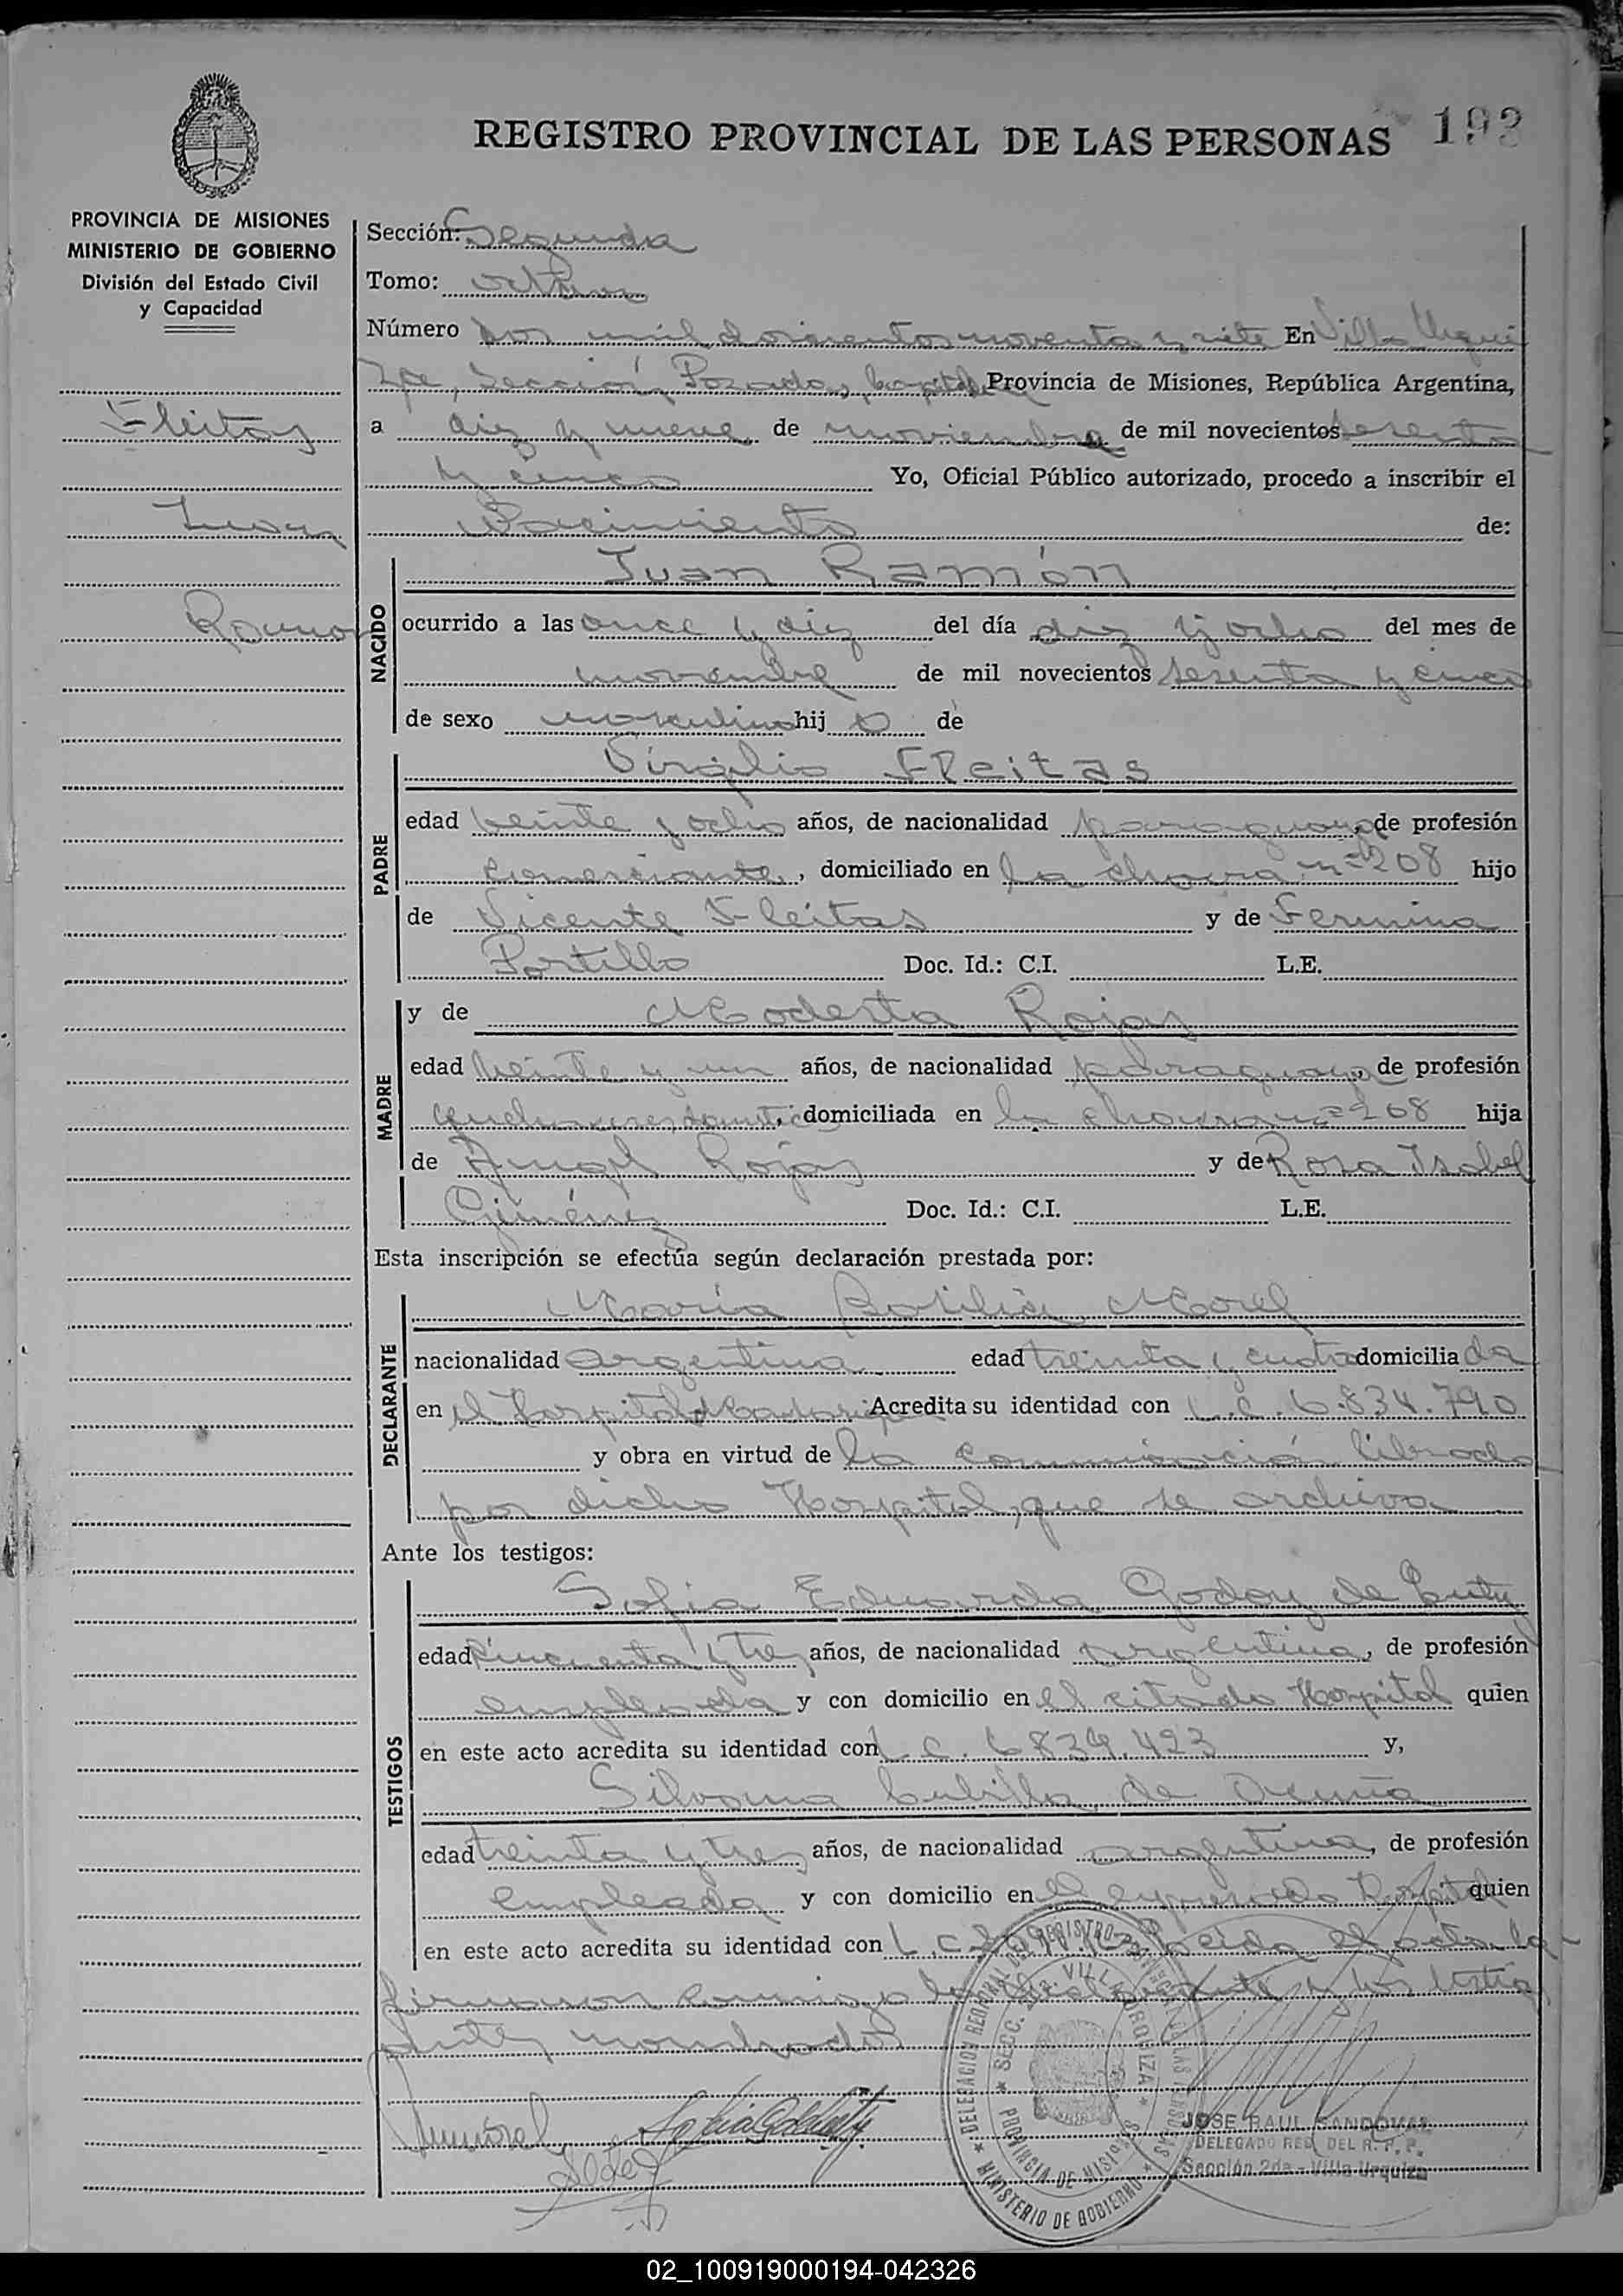 REGISTRO PROVINCIAL DE LAS PERSONAS 193
PROVINCIA DE MISIONES
MINISTERIO DE GOBIERNO
División del Estado Civil
y Capacidad
Fleitas
Juan
Ramón
Sección: Segunda
Tomo: octavo
Número dos mil doscientos noventa y siete En Villa Urqui
za, Sección Posadas, Capital Provincia de Misiones, República Argentina,
a diez y nueve de noviembre de mil novecientos sesenta
y cinco Yo, Oficial Público autorizado, procedo a inscribir el
Nacimiento de:
NACIDO
Juan Ramón
ocurrido a las once y diez del día diez y ocho del mes de
noviembre de mil novecientos sesenta y cinco
de sexo masculino hij o de
PADRE
Virgilio Fleitas
edad veinte y ocho años, de nacionalidad paraguaya, de profesión
comerciante, domiciliado en la chacra nº 208 hijo
de Vicente Fleitas y de Fermina
Portillo Doc. Id.: C.I. L.E.
MADRE
y de Modesta Rojas
edad veinte y un años, de nacionalidad paraguaya, de profesión
quehaceres domésticos, domiciliada en la chacra nº 208 hija
de Angel Rojas y de Rosa Isabel
Giménez Doc. Id.: C.I. L.E.
Esta inscripción se efectúa según declaración prestada por:
DECLARANTE
María Morel
nacionalidad argentina edad treinta y cuatro domicilia da
en el Hospital de Acredita su identidad con L.C. 6.834.790
y obra en virtud de la comunicación librada
por dicho Hospital, que se archiva
Ante los testigos:
TESTIGOS
Sofia Eduarda Godoy de
edad cincuenta y tres años, de nacionalidad argentina, de profesión
empleada y con domicilio en el citado Hospital quien
en este acto acredita su identidad con L.C. 6.839.423 y,
Silvana Cubilla de Acuña
edad treinta y tres años, de nacionalidad argentina, de profesión
empleada y con domicilio en el expresado Hospital quien
en este acto acredita su identidad con L.C. Leida el acta la
firmaron conmigo la declarante y los testigos
antes nombrados
DELEGACION REGIONAL DEL REGISTRO PROVINCIAL DE LAS PERSONAS
MINISTERIO DE GOBIERNO
SECC. 2da. VILLA URQUIZA
PROVINCIA DE MISIONES
JOSE RAUL SANDOVAL
DELEGADO REG. DEL R. P. P.
Sección 2da - Villa Urquiza
02_100919000194-042326